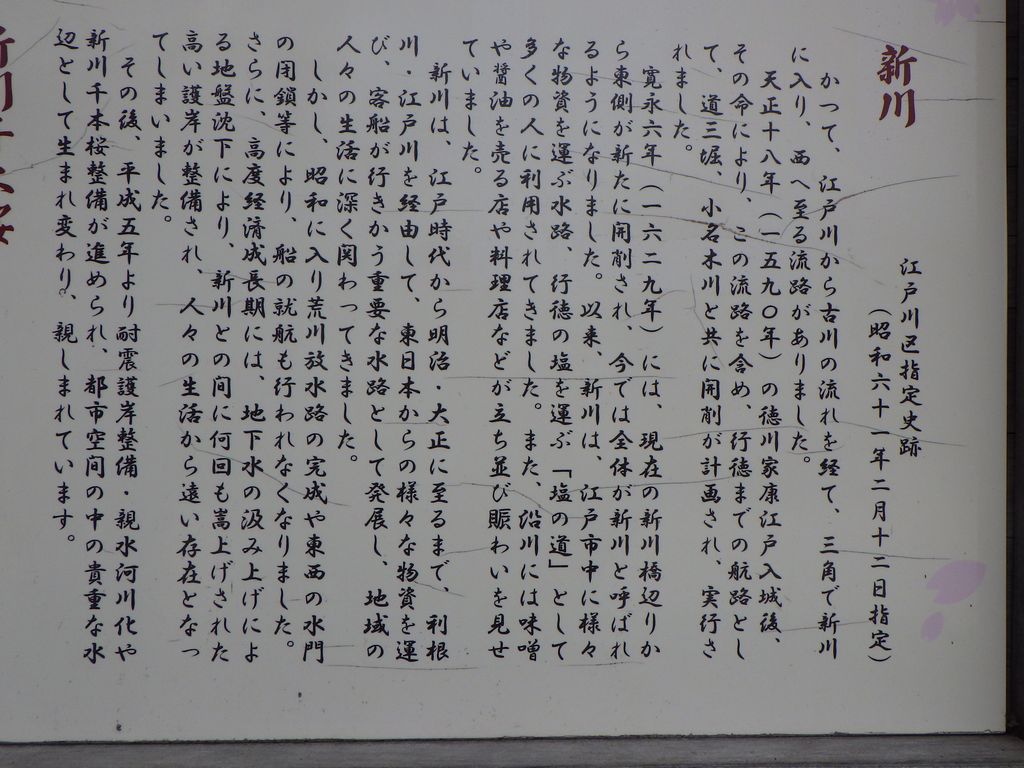 新川
江戸川区指定史跡
（昭和六十一年二月十二日指定）
かつて、江戸川から古川の流れを経て、三角で新川
に入り、西へ至る流路がありました。
天正十八年（一五九〇年）の徳川家康江戸入城後、
その命により、この流路を含め、行徳までの航路とし
て、道三堀、小名木川と共に開削が計画され、実行さ
れました。
寛永六年（一六二九年）には、現在の新川橋辺りか
ら東側が新たに開削され、今では全体が新川と呼ばれ
るようになりました。以来、新川は、江戸市中に様々
な物資を運ぶ水路、行徳の塩を運ぶ「塩の道」として
多くの人に利用されてきました。また、沿川には味噌
や醤油を売る店や料理店などが立ち並び賑わいを見せ
ていました。
新川は、江戸時代から明治・大正に至るまで、利根
川・江戸川を経由して、東日本からの様々な物資を運
び、客船が行きかう重要な水路として発展し、地域の
人々の生活に深く関わってきました。
しかし、昭和に入り荒川放水路の完成や東西の水門
の閉鎖等により、船の就航も行われなくなりました。
さらに、高度経済成長期には、地下水の汲み上げによ
る地盤沈下により、新川との間に何回も嵩上げされた
高い護岸が整備され、人々の生活から遠い存在となっ
てしまいました。
その後、平成五年より耐震護岸整備・親水河川化や
新川千本桜整備が進められ、都市空間の中の貴重な水
辺として生まれ変わり、親しまれています。
新川千本桜